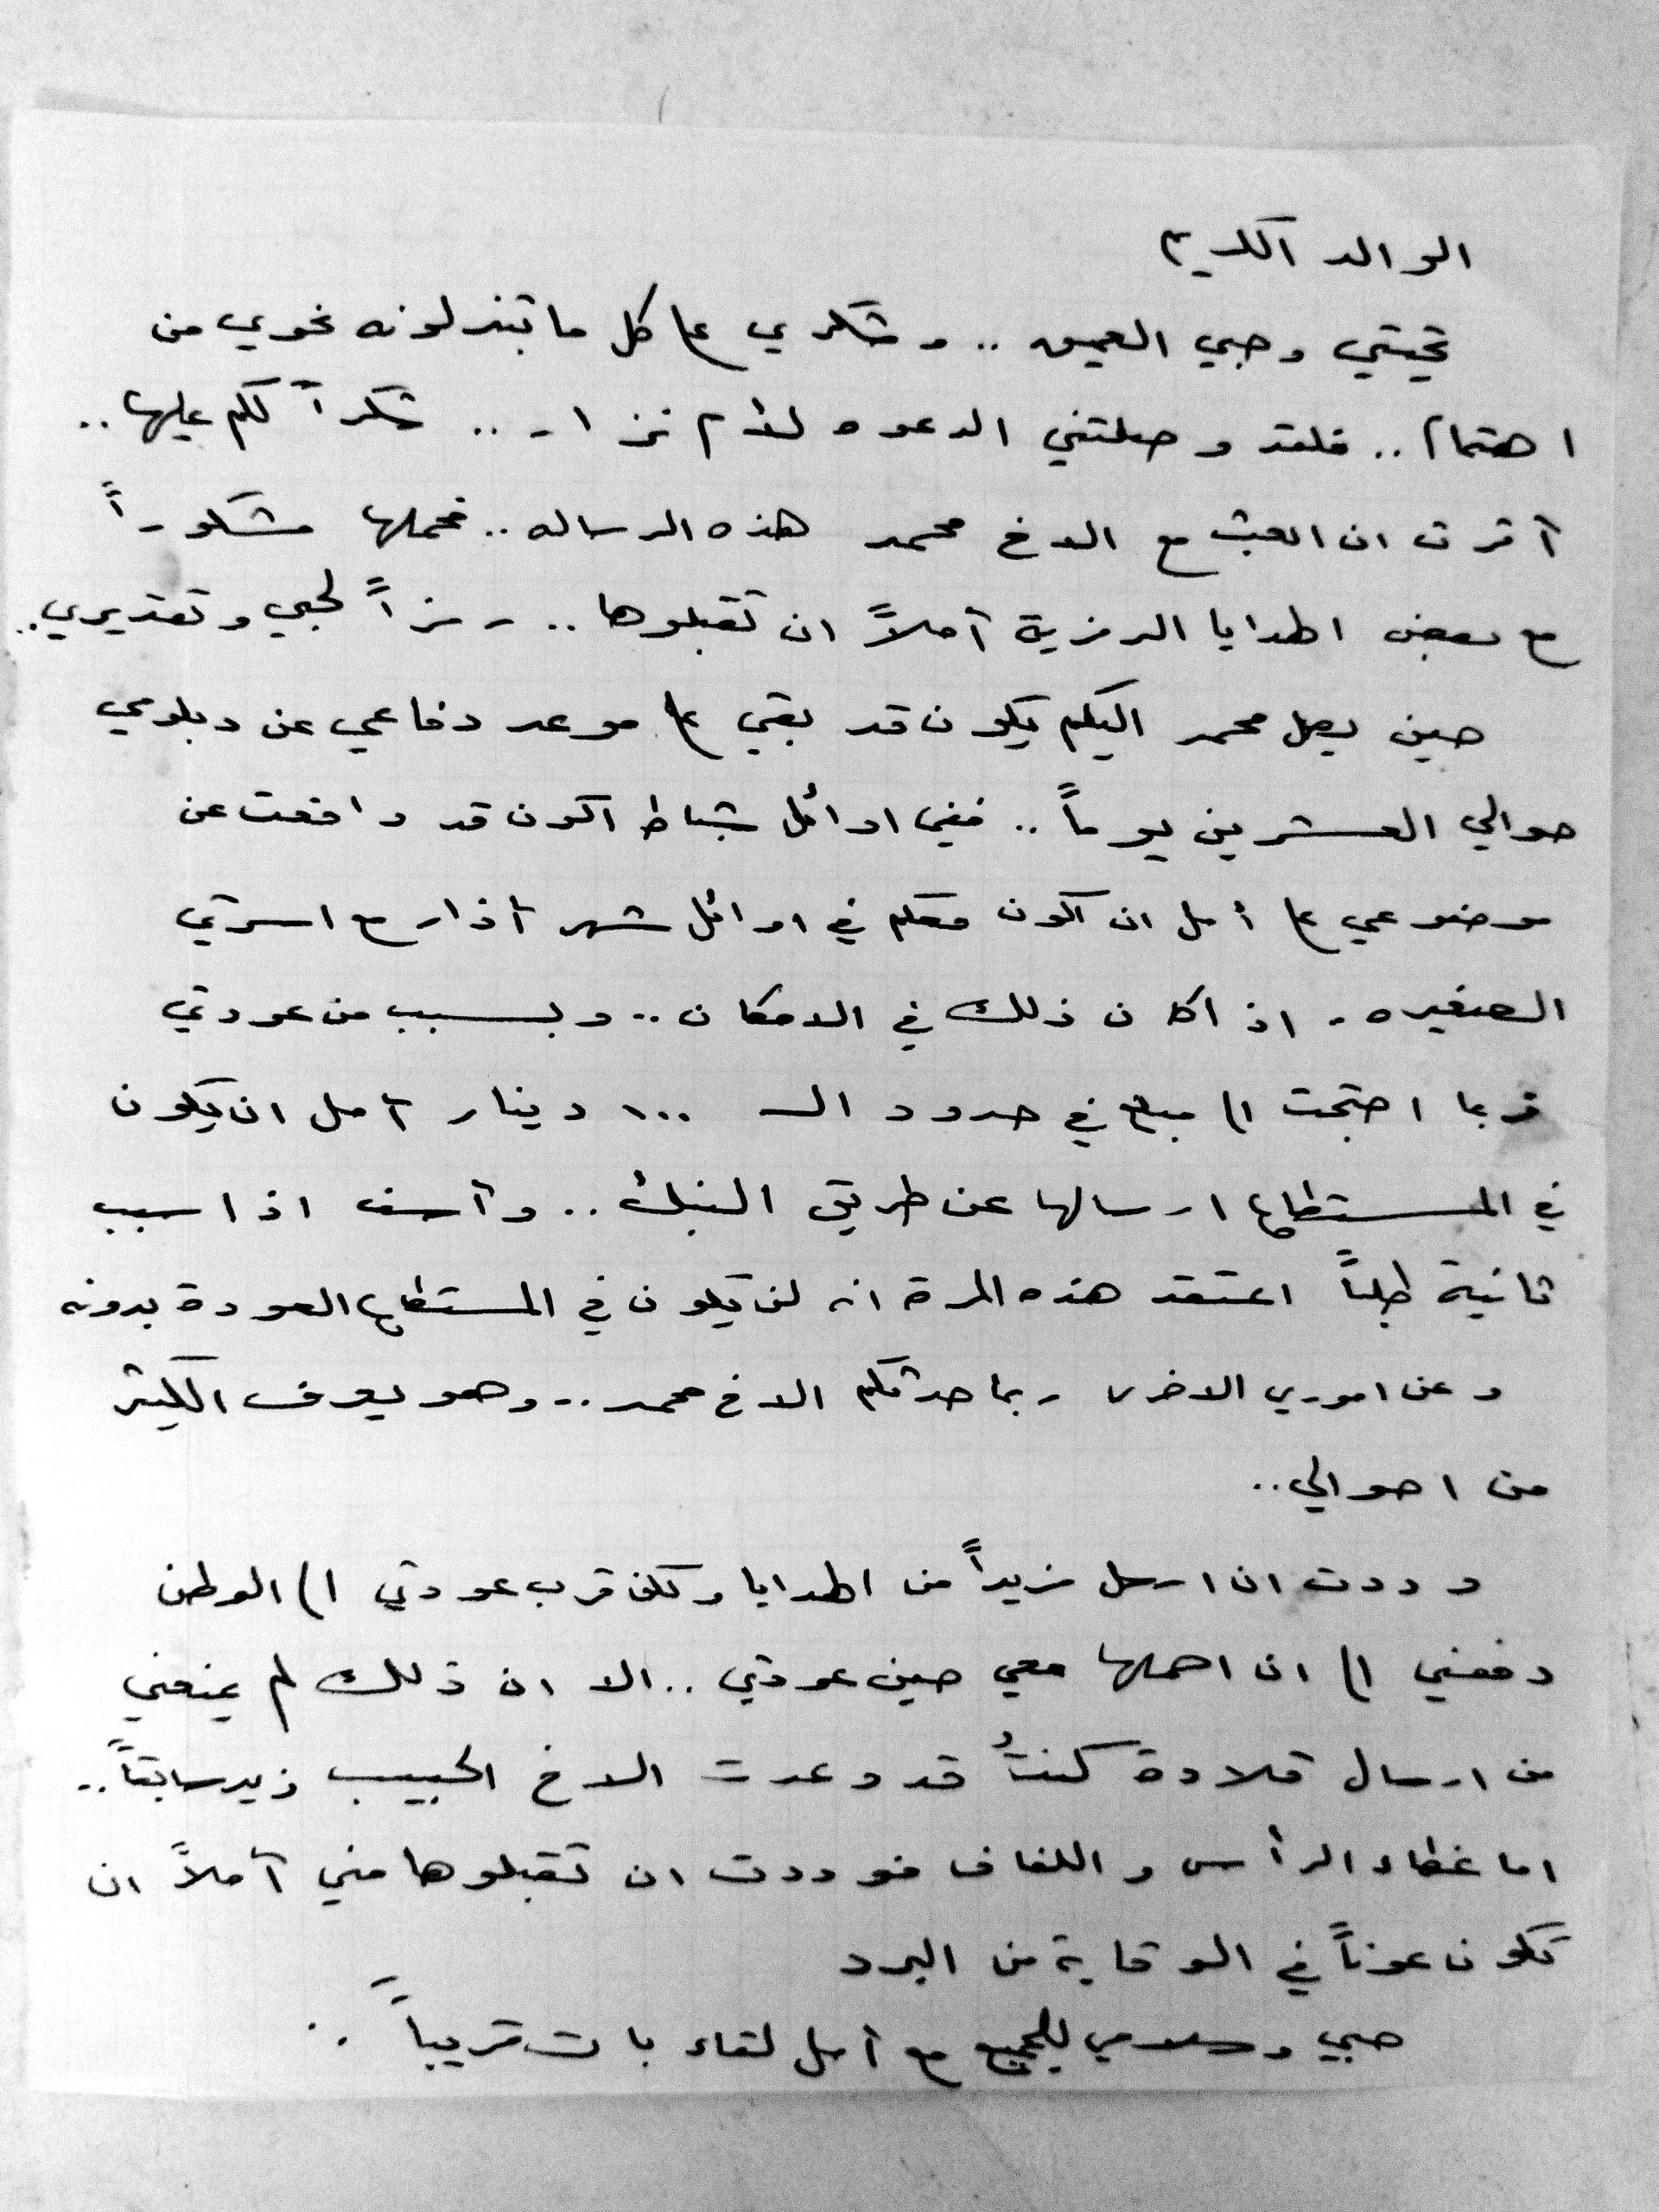 الوالد الكريم
تحيتي وحبي العميق .. وشكري على كل ما تبذلونه نحوي من
اهتمام .. فلقد وصلتني الدعوه لأم نزار .. شكراً لكم عليها ..
آثرت ان ابعث مع الاخ محمد هذه الرساله .. فحملها مشكوراً
مع بعض الهدايا الرمزية آملاً ان تقبلوها .. رمزاً لحبي وتقديري ..
حين يصل محمد اليكم يكون قد بقي على موعد دفاعي عن دبلومي
حوالي العشرين يوماً .. ففي اوائل شباط اكون قد دافعت عن
موضوعي على أمل ان اكون معكم في اوائل شهر آذار مع اسرتي
الصغيره . اذا كان ذلك في الامكان .. وبسبب من عودتي
فربما احتجت الى مبلغ في حدود الـ ١٠٠ دينار آمل ان يكون
في المستطاع ارسالها عن طريق البنك .. وآسف اذا سبب
ثانية طلباً اعتقد هذه المرة انه لن يكون في المستطاع العودة بدونه
وعن اموري الاخرى ربما حدثكم الاخ محمد .. وهو يعرف الكثير
من احوالي ..
وددت ان ارسل مزيداً من الهدايا ولكن قرب عودتي الى الوطن
دفعني الى ان احملها معي حين عودتي .. الا ان ذلك لم يمنعني
من ارسال قلادة كنتُ قد وعدت الاخ الحبيب زيد سابقاً ..
اما غطاء الرأس واللفاف فوددت ان تقبلوها مني آملاً ان
تكون عوناً في الوقاية من البرد
حبي وسلامي للجميع مع أمل لقاء بات قريباً ..